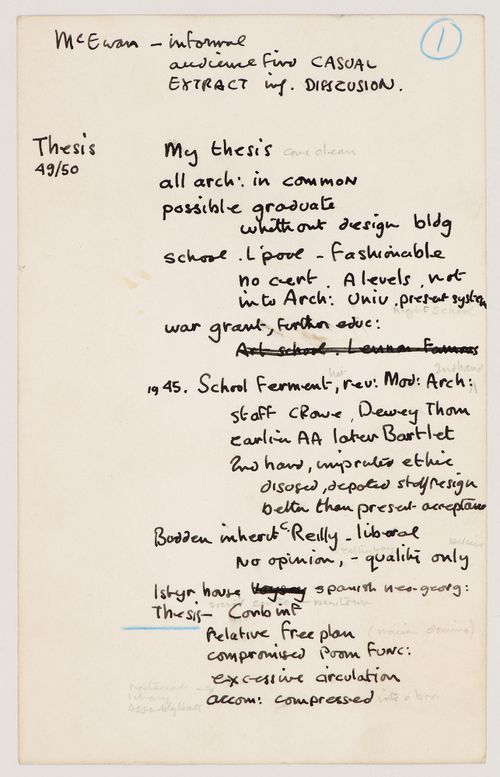 McEwan - informal
audience find CASUAL
EXTRACT inf. DISSCUSION.
1
Thesis
49/50
My thesis come clean
all arch: in common
possible graduate
whithout design bldg
school. L'pool - Fashionable
no cert. A levels, not
into Arch: Univ, present system
night school
war grant, further educ:
Art school. Lennon Famous
2nd hand
1945. School Ferment, rev: Mod: Arch:
staff CRowe, Dewey Thom
earlier AA later Bartlet
2nd hand, imported ethic
disused, deposed staff/resign
better than present acceptance
Budden inherit Reilly - liberal
No opinion, - quality only
1styr house Voysey spanish neo-georg:
Thesis - Conb inf
Relative Free plan (maison domino)
compromised Room Func:
excessive circulation
accom: compressed into a box
library
Assembly Hall